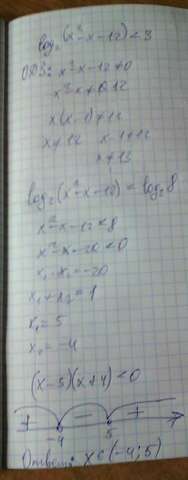 log₂(x²-x-12)<3
ОДЗ: x²-x-12≠0
x²-x≠12
x(x-1)≠12
x≠12 x-1≠12
x≠13
log₂(x²-x-12)<log₂8
x²-x-12<8
x²-x-20<0
x₁·x₂=-20
x₁+x₂=1
x₁=5
x₂=-4
(x-5)(x+4)<0
+ - +
-4 5
Ответ: x∈(-4;5)